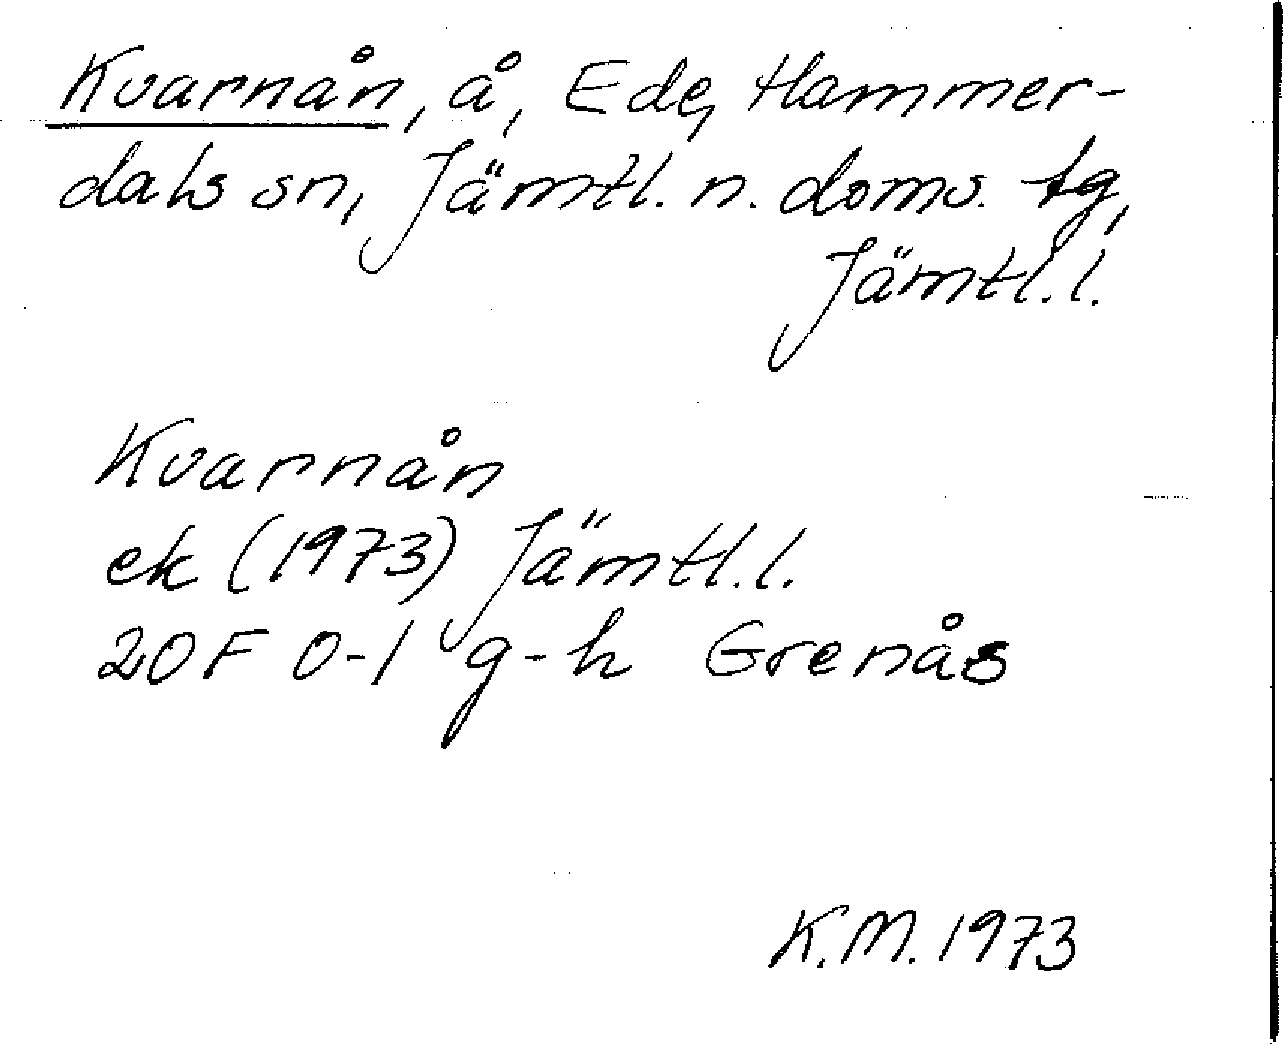 Kvarnån, å, Ede, Hammer-
dals sn, Jämtl. n. doms. tg,
Jämtl. l.
Kvarnån
ek (1973) Jämtl. l.
20F 0-1 g-h Grenås
K.M. 1973